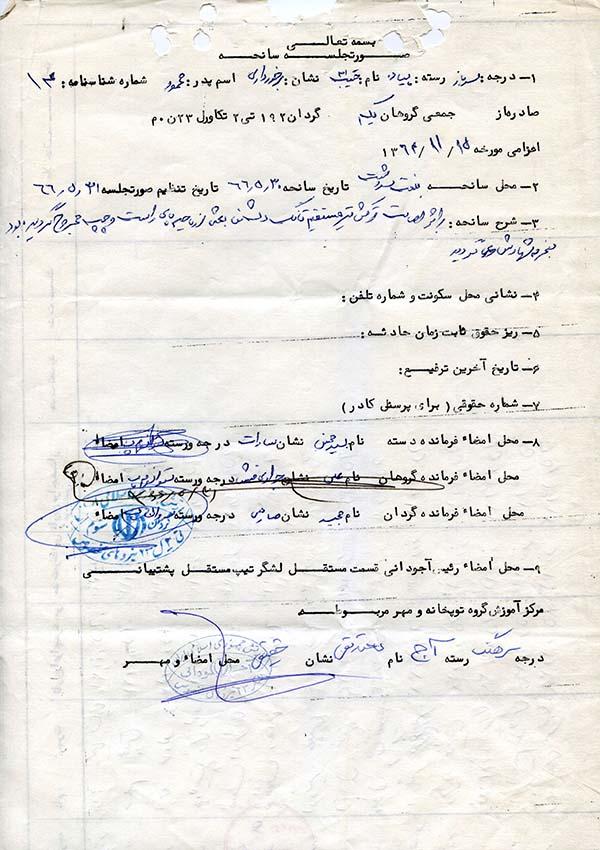 بسمه تعالی
صورتجلسه سانحه
۱ـ درجه: سرباز رسته: پیاده نام: نشان: برخورداری اسم پدر: محمود شماره شناسنامه: ۱۴
صادره از جمعی گروهان یکم گردان ۱۹۲ تی ۲ تکاور ل ۲۳ ن و م
اعزامی مورخه ۱۳۶۴/۱۱/۱۵
۲ـ محل سانحه بانه سردشت تاریخ سانحه ۶۶,۵,۳۰ تاریخ تنظیم صورتجلسه ۶۶,۵,۳۱
۳ـ شرح سانحه: بر اثر اصابت ترکش تیر مستقیم تانک دشمن از ناحیه پای راست و چپ مجروح گردیده بود
منجر به شهادش گردید
۴ـ نشانی محل سکونت و شماره تلفن:
۵ـ ریز حقوق ثابت زمان حادثه:
۶ـ تاریخ آخرین ترفیع:
۷ـ شماره حقوقی (برای پرسنل کادر)
۸ـ محل امضاء فرمانده دسته نام نشان درجه ورسته امضاء
محل امضاء فرمانده گروهان نام علی نشان درجه ورسته امضاء
محل امضاء فرمانده گردان نام مجید نشان صائمی درجه ورسته امضاء
۹ـ محل امضاء رئیس آجودانی قسمت مستقل لشگر تیپ مستقل پشتیبانی
مرکز آموزش گروه توپخانه و مهر مربوطه
درجه سرهنگ رسته آج نام محمدتقی نشان محل امضاء و مهر